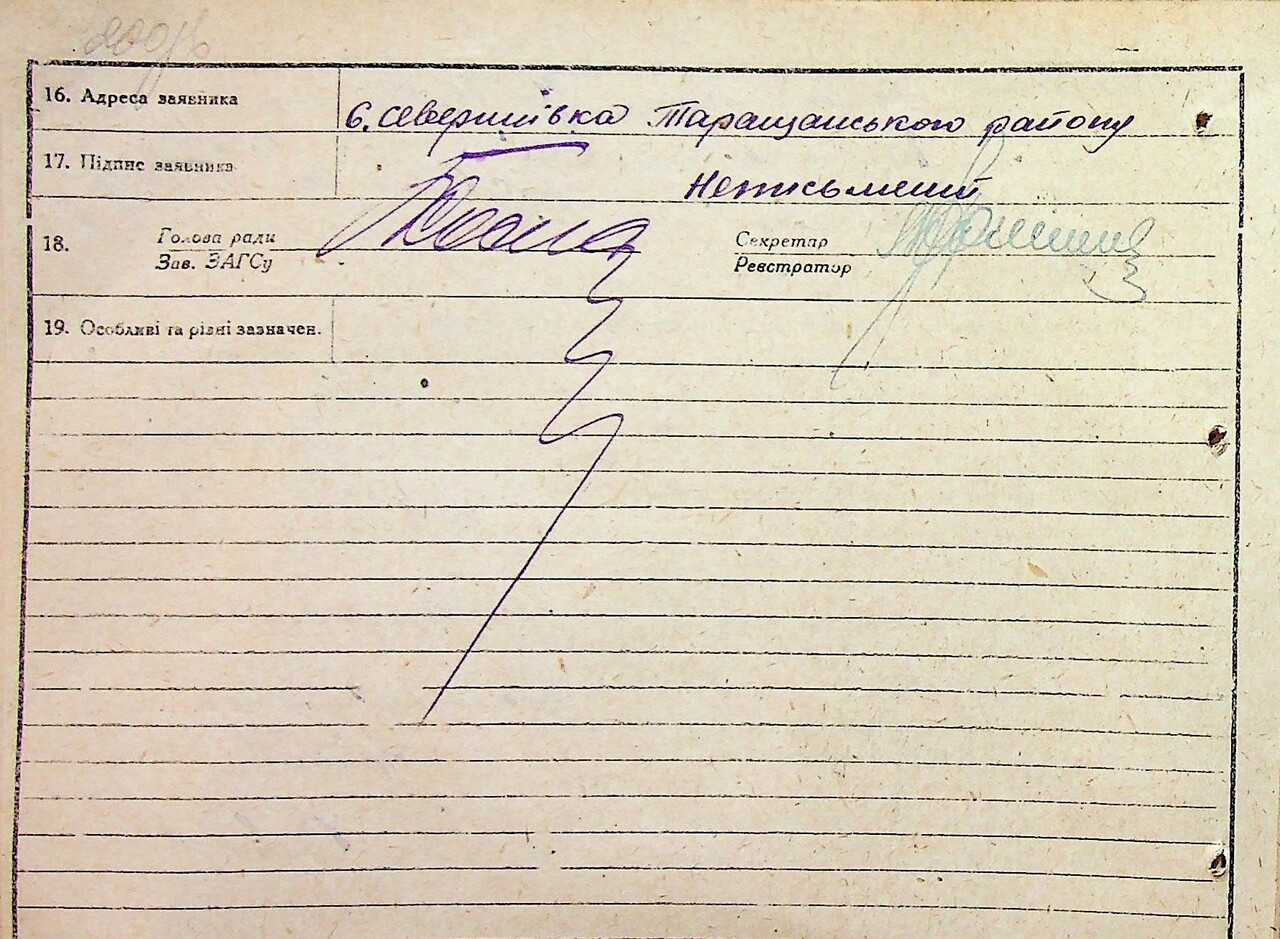 16. Адреса заявника
с. Северинівка Таращанського району
17. Підпис заявника
Неписьмений
18. Голова ради
Зав. ЗАГСу
Секретар
Реєстратор
19. Особливі та різні зазначен.